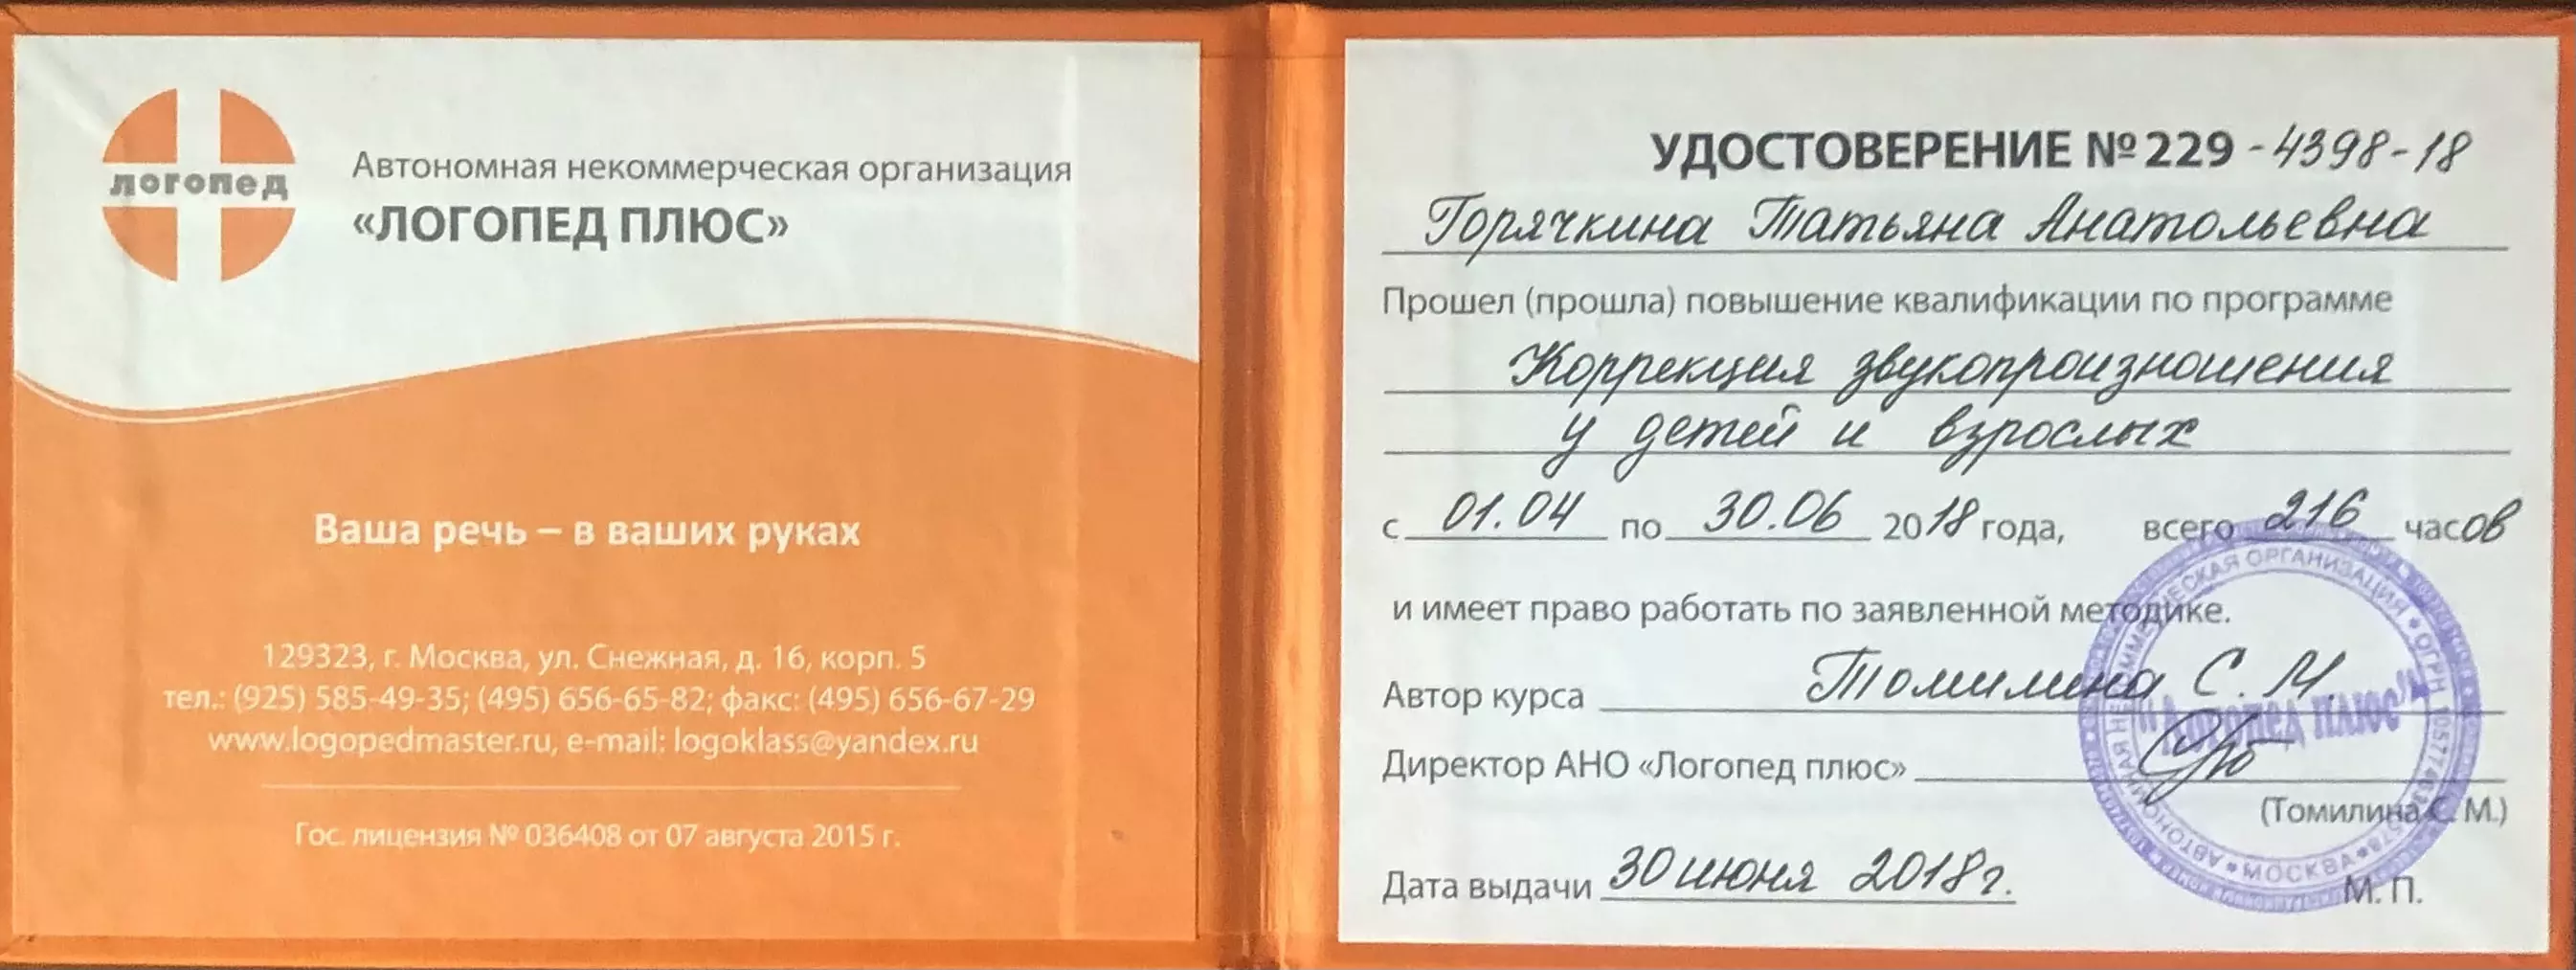 логопед
Автономная некоммерческая организация
«ЛОГОПЕД ПЛЮС»
Ваша речь – в ваших руках
129323, г. Москва, ул. Снежная, д. 16, корп. 5
тел.: (925) 585-49-35; (495) 656-65-82; факс: (495) 656-67-29
www.logopedmaster.ru, e-mail: logoklass@yandex.ru
Гос. лицензия № 036408 от 07 августа 2015 г.
УДОСТОВЕРЕНИЕ № 229 -4398-18
Горячкина Татьяна Анатольевна
Прошел (прошла) повышение квалификации по программе
Коррекция звукопроизношения
у детей и взрослых
с 01.04 по 30.06 2018 года, всего 216 часов
и имеет право работать по заявленной методике.
Автор курса Томилина С. М.
Директор АНО «Логопед плюс»
(Томилина С. М.)
Дата выдачи 30 июня 2018г.
М. П.
АВТОНОМНАЯ НЕКОММЕРЧЕСКАЯ ОРГАНИЗАЦИЯ • ОГРН
"Логопед плюс"
• МОСКВА •